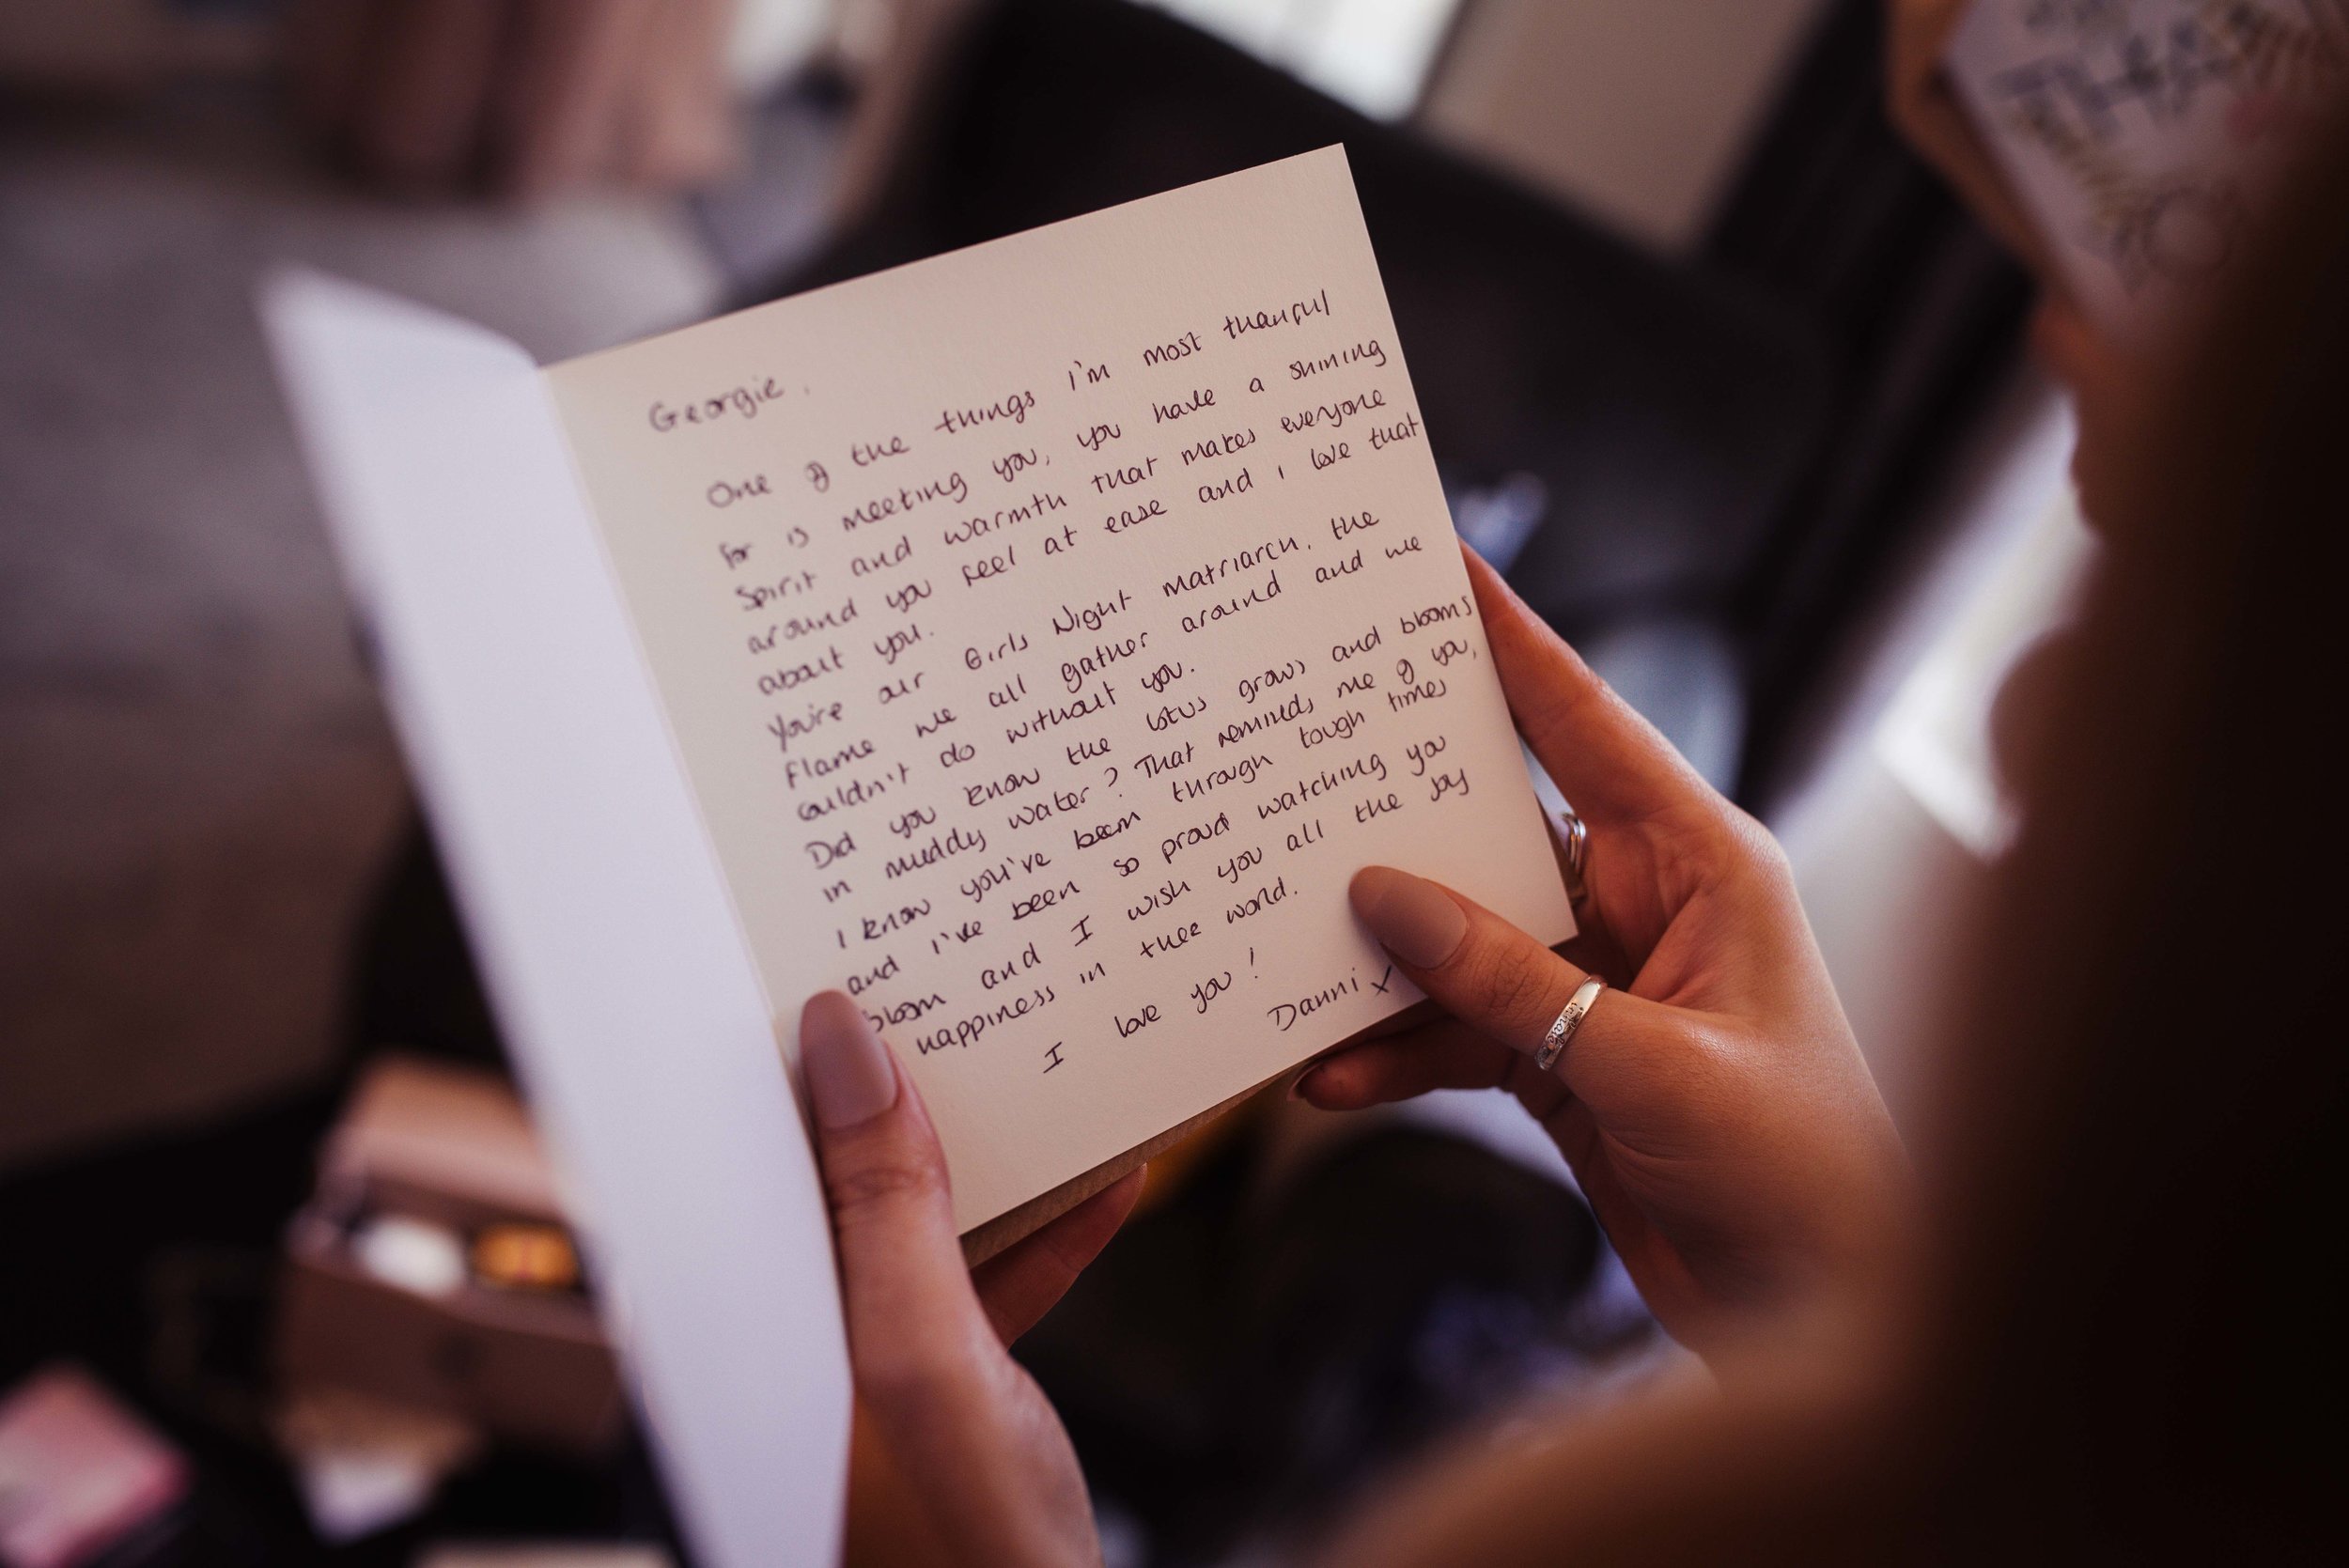 Georgie,
One of the things I'm most thankful
for is meeting you, you have a shining
spirit and warmth that makes everyone
around you feel at ease and I love that
about you.
You're our Girls Night matriarch, the
flame we all gather around and we
couldn't do without you.
Did you know the lotus grows and blooms
in muddy water? That reminds me of you,
I know you've been through tough times
and I've been so proud watching you
bloom and I wish you all the joy
happiness in thee world.
I love you!
Danni x